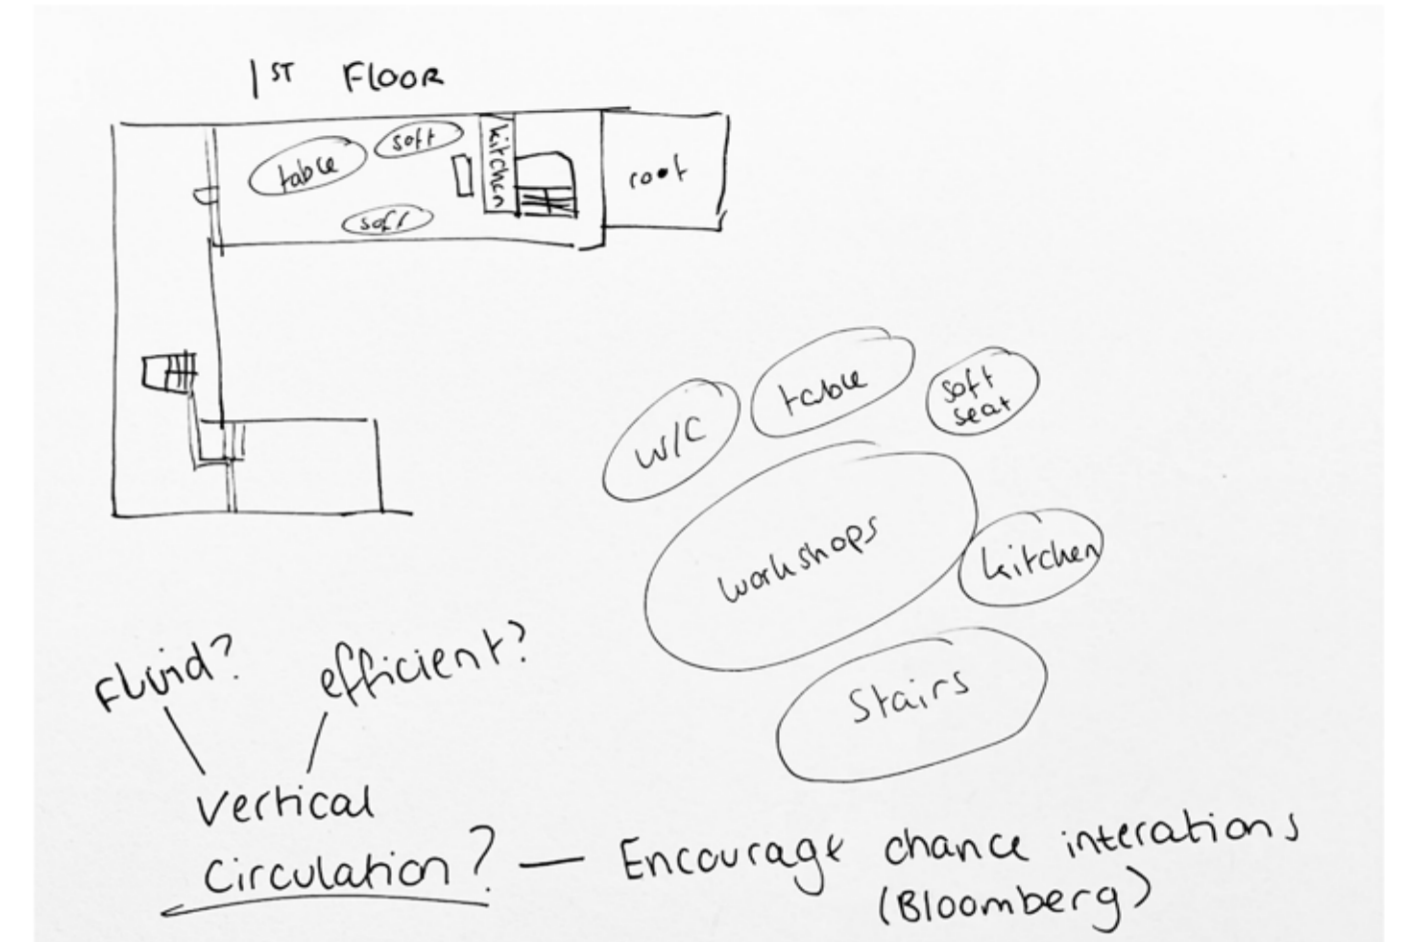 1ST FLOOR
table
soft
kitchen
soft
roof
W/C
table
soft
seat
workshops
kitchen
Stairs
Fluid?
efficient?
Vertical
Circulation? — Encourage chance interations
(Bloomberg)